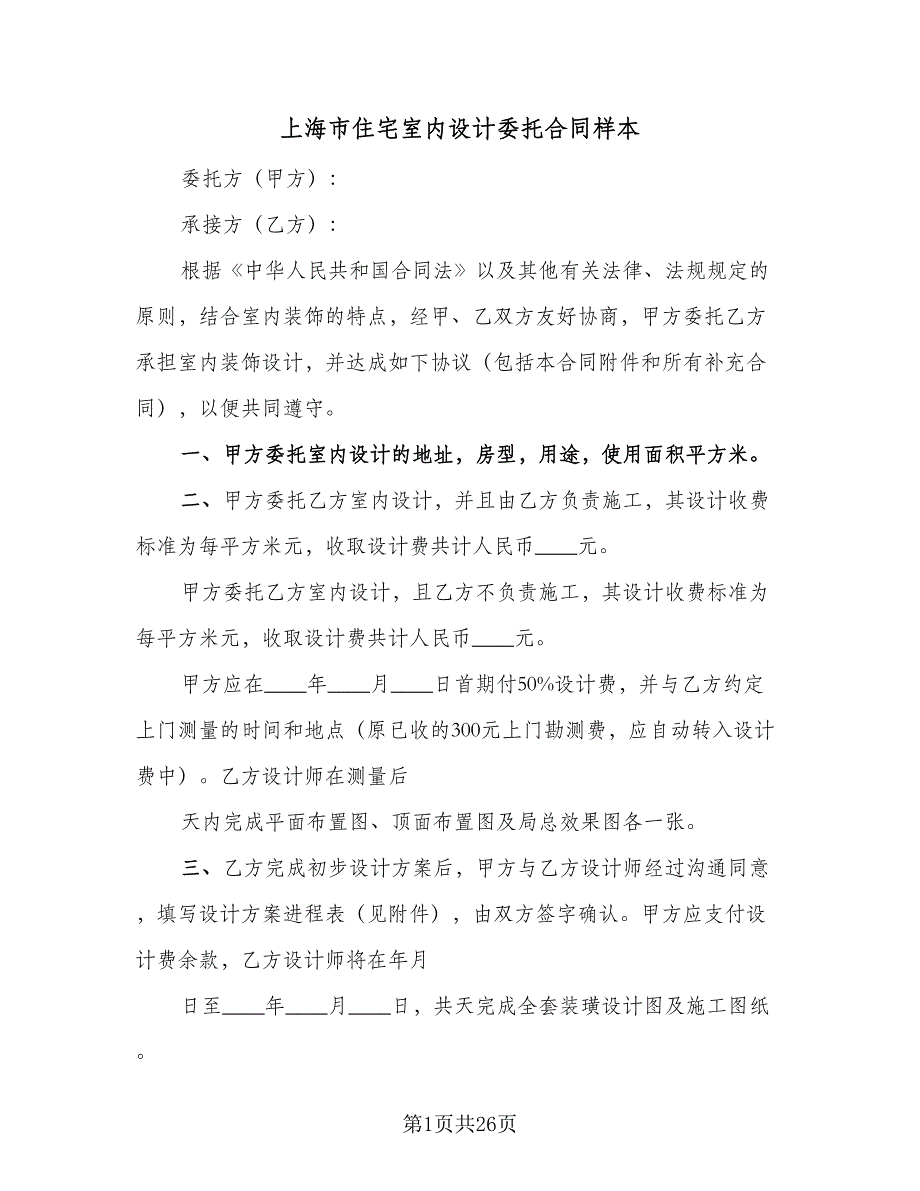 上海市住宅室内设计委托合同样本
委托方（甲方）：
承接方（乙方）：
根据《中华人民共和国合同法》以及其他有关法律、法规规定的
原则，结合室内装饰的特点，经甲、乙双方友好协商，甲方委托乙方
承担室内装饰设计，并达成如下协议（包括本合同附件和所有补充合
同），以便共同遵守。
一、甲方委托室内设计的地址，房型，用途，使用面积平方米。
二、甲方委托乙方室内设计，并且由乙方负责施工，其设计收费
标准为每平方米元，收取设计费共计人民币____元。
甲方委托乙方室内设计，且乙方不负责施工，其设计收费标准为
每平方米元，收取设计费共计人民币____元。
甲方应在____年____月____日首期付50%设计费，并与乙方约定
上门测量的时间和地点（原已收的300元上门勘测费，应自动转入设计
费中）。乙方设计师在测量后
天内完成平面布置图、顶面布置图及局总效果图各一张。
三、乙方完成初步设计方案后，甲方与乙方设计师经过沟通同意
，填写设计方案进程表（见附件），由双方签字确认。甲方应支付设
计费余款，乙方设计师将在年月
日至____年____月____日，共天完成全套装璜设计图及施工图纸
。
第1页共26页